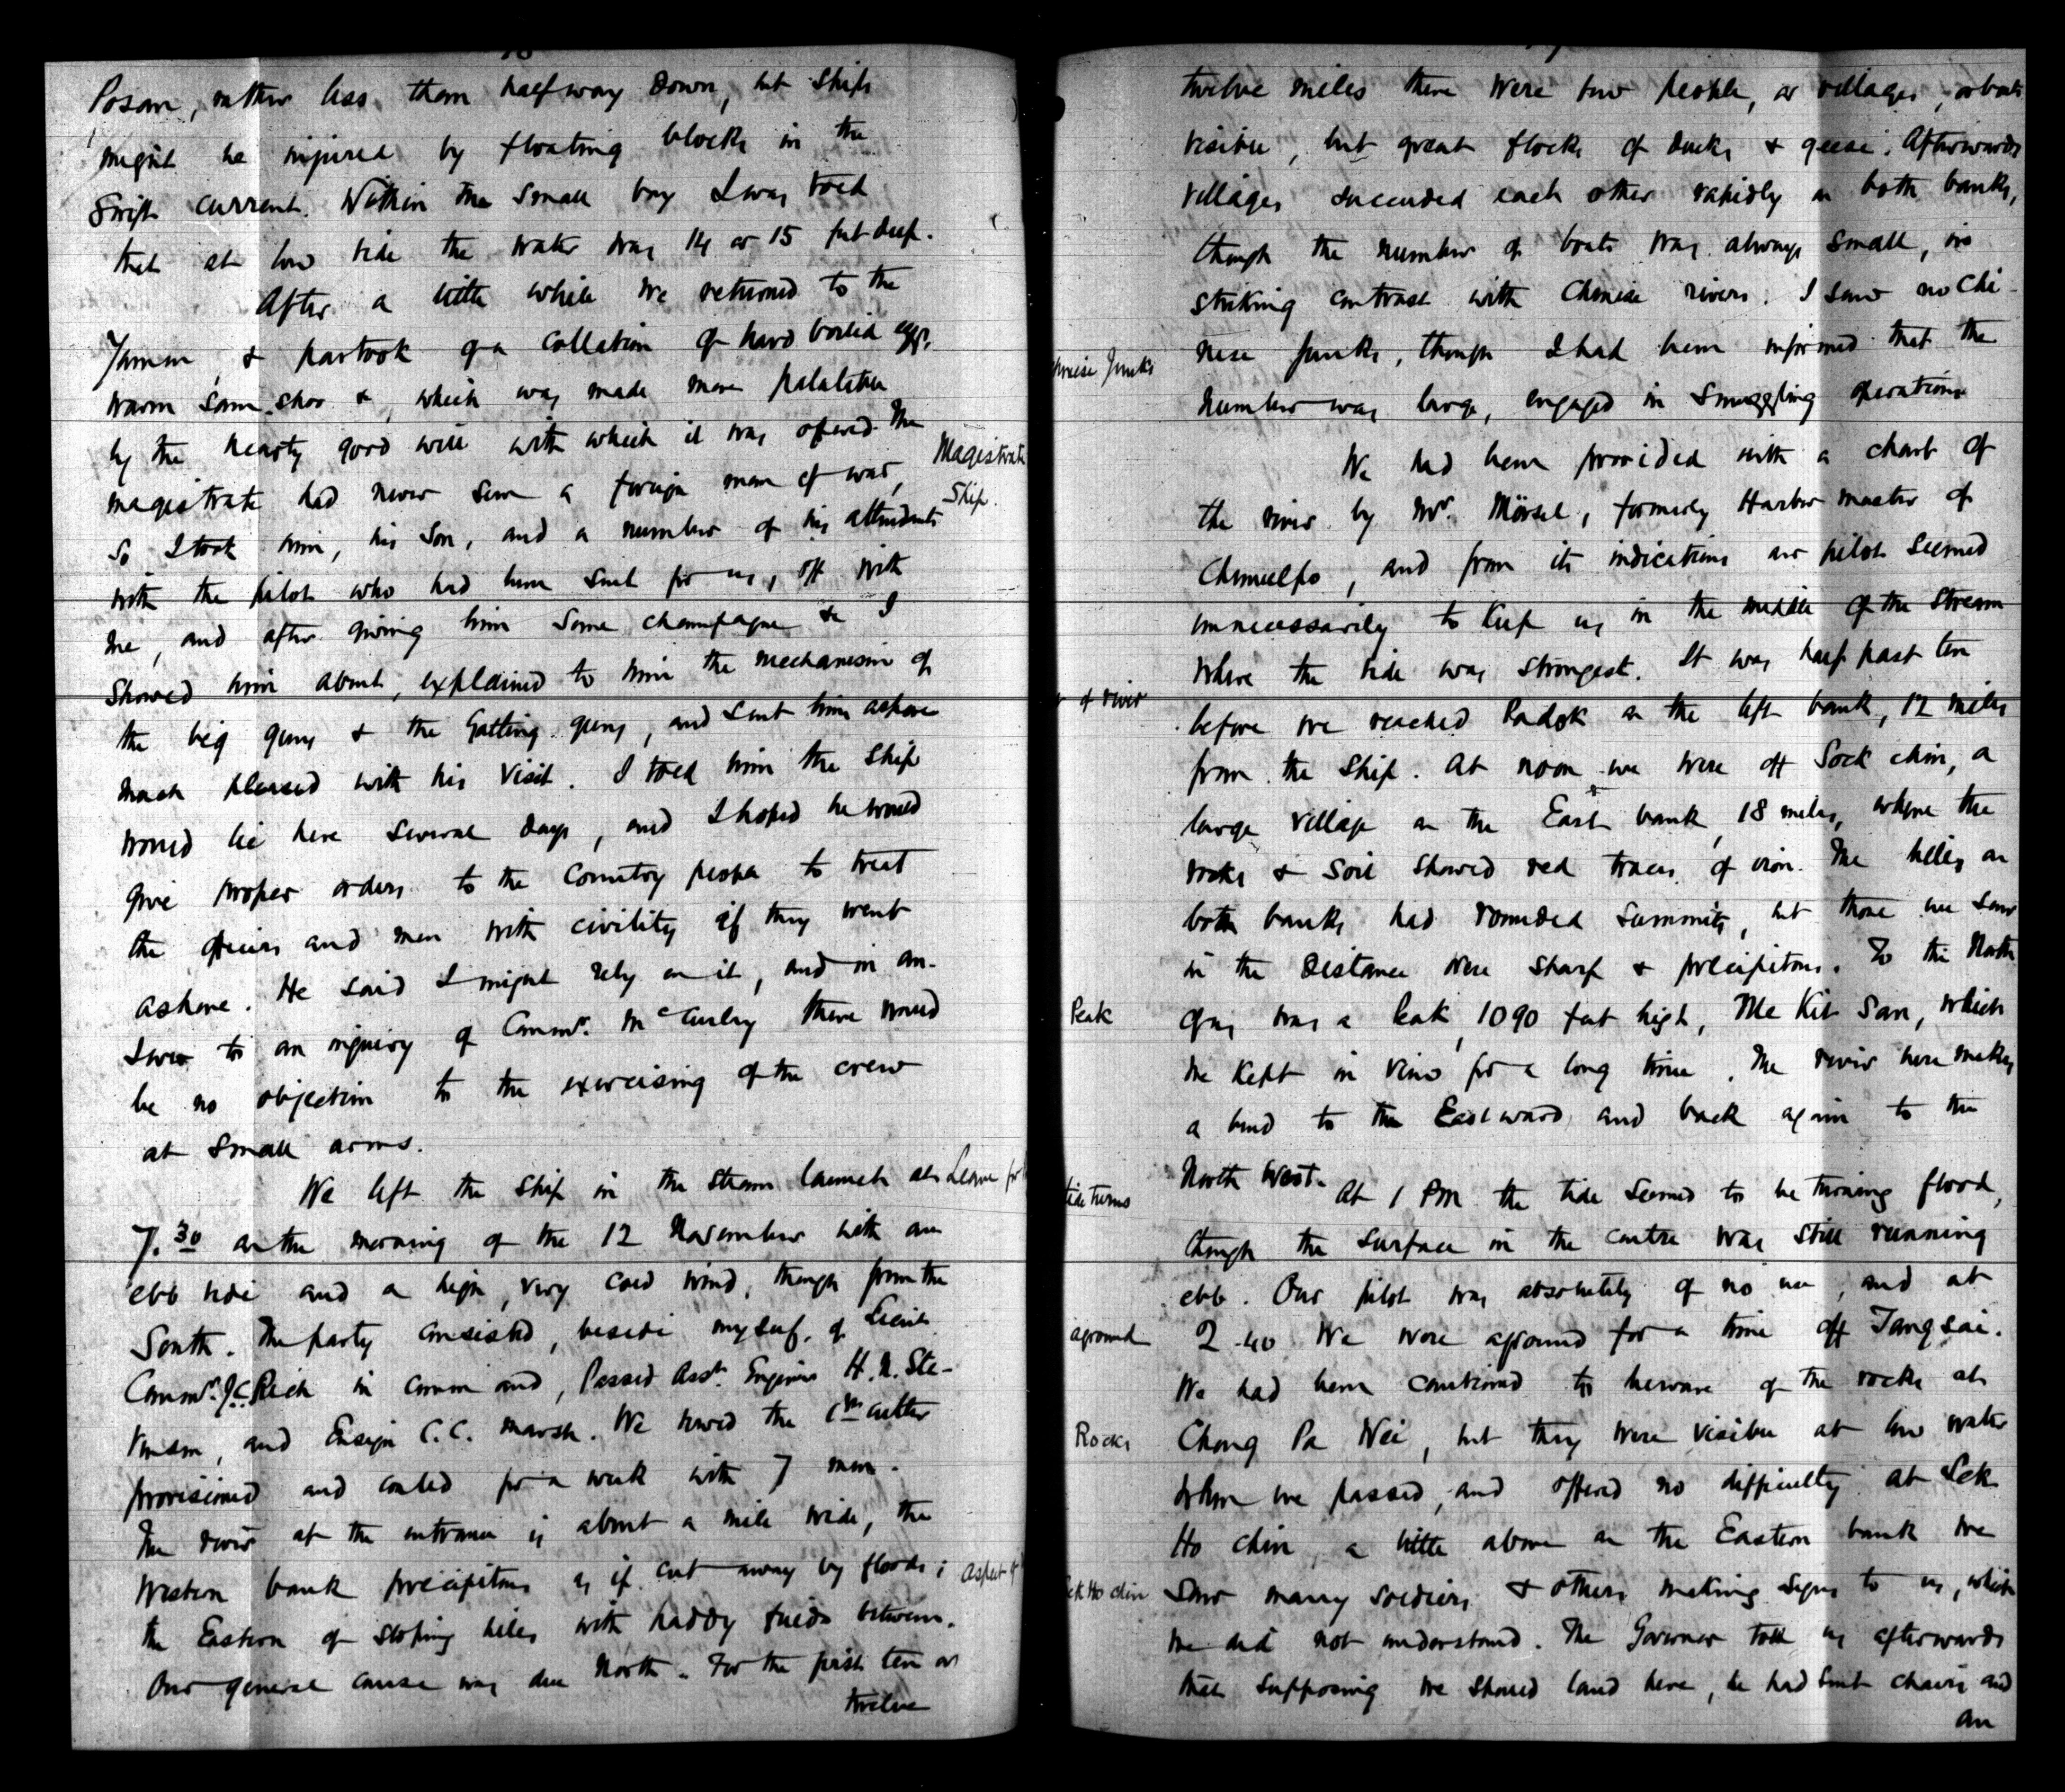 Posan, rather less than half way down, but ships
might be injured by floating blocks in the
swift current. Within the small bay I was told
that at low tide the water was 14 or 15 feet deep.
After a little while we returned to the
Yamun, & partook of a collation of hard boiled eggs,
warm sam-shoo &c, which was made more palatable
by the hearty good will with which it was offered. The
Magistrate
magistrate had never seen a foreign man of war,
Ship.
so I took him, his son, and a number of his attendants
with the pilot who had been sent for us, off with
me, and after giving him some champagne &c I
showed him about, explained to him the mechanism of
the big guns & the Gatling guns, and sent him ashore
much pleased with his visit. I told him the ship
would lie here several days, and I hoped he would
give proper orders to the country people to treat
the officers and men with civility if they went
ashore. He said I might rely on it, and in an-
swer to an inquiry of Commr. McCurley there would
be no objection to the exercising of the crew
at small arms.
We left the ship in the steam launch at
Leave for
7.30 on the morning of the 12 November with an
ebb tide and a high, very cold wind, though from the
South. The party consisted, beside myself, of Lieut.
Commr. J.C. Rich in command, Passed Asst. Engineer H.N. Ste-
venson, and Ensign C.C. Marsh. We towed the cutter
provisioned and coaled for a week with 7 men.
The river at the entrance is about a mile wide, the
Western bank precipitous as if cut away by floods;
aspect of
the Eastern of sloping hills with paddy fields between.
Our general course was due North. For the first ten or
twelve
twelve miles there were few people, or villages, or boats
visible, but great flocks of ducks & geese. Afterwards
villages succeeded each other rapidly on both banks,
though the number of boats was always small, in
striking contrast with Chinese rivers. I saw no Chi-
Chinese Junks
nese junks, though I had been informed that the
number was large, engaged in smuggling operations
We had been provided with a chart of
the river by Mr. Mörsel, formerly Harbor master of
Chemulpo, and from its indications our pilot seemed
unnecessarily to keep us in the middle of the stream
where the tide was strongest. It was half past ten
of river
before we reached Padok on the left bank, 12 miles
from the ship. At noon we were off Sock chin, a
large village on the East bank, 18 miles, where the
rocks & soil showed red traces of iron. The hills on
both banks had rounded summits, but those we saw
in the distance were sharp & precipitous. To the North
Peak
of us was a peak, 1090 feet high, Me Kit San, which
we kept in view for a long time. The river here makes
a bend to the Eastward, and back again to the
North West.
tide turns
At 1 PM the tide seemed to be turning flood,
though the surface in the centre was still running
ebb. Our pilot was absolutely of no use, and at
aground
2.40 we were aground for a time off Tangsai.
We had been cautioned to beware of the rocks at
Rocks
Chong Pa Wei, but they were visible at low water
when we passed, and offered no difficulty. At Sek
Ho chin, a little above on the Eastern bank we
Sek Ho chin
saw many soldiers & others making signs to us, which
we did not understand. The Governor told us afterwards
that supposing we should land here, he had sent chairs and
an